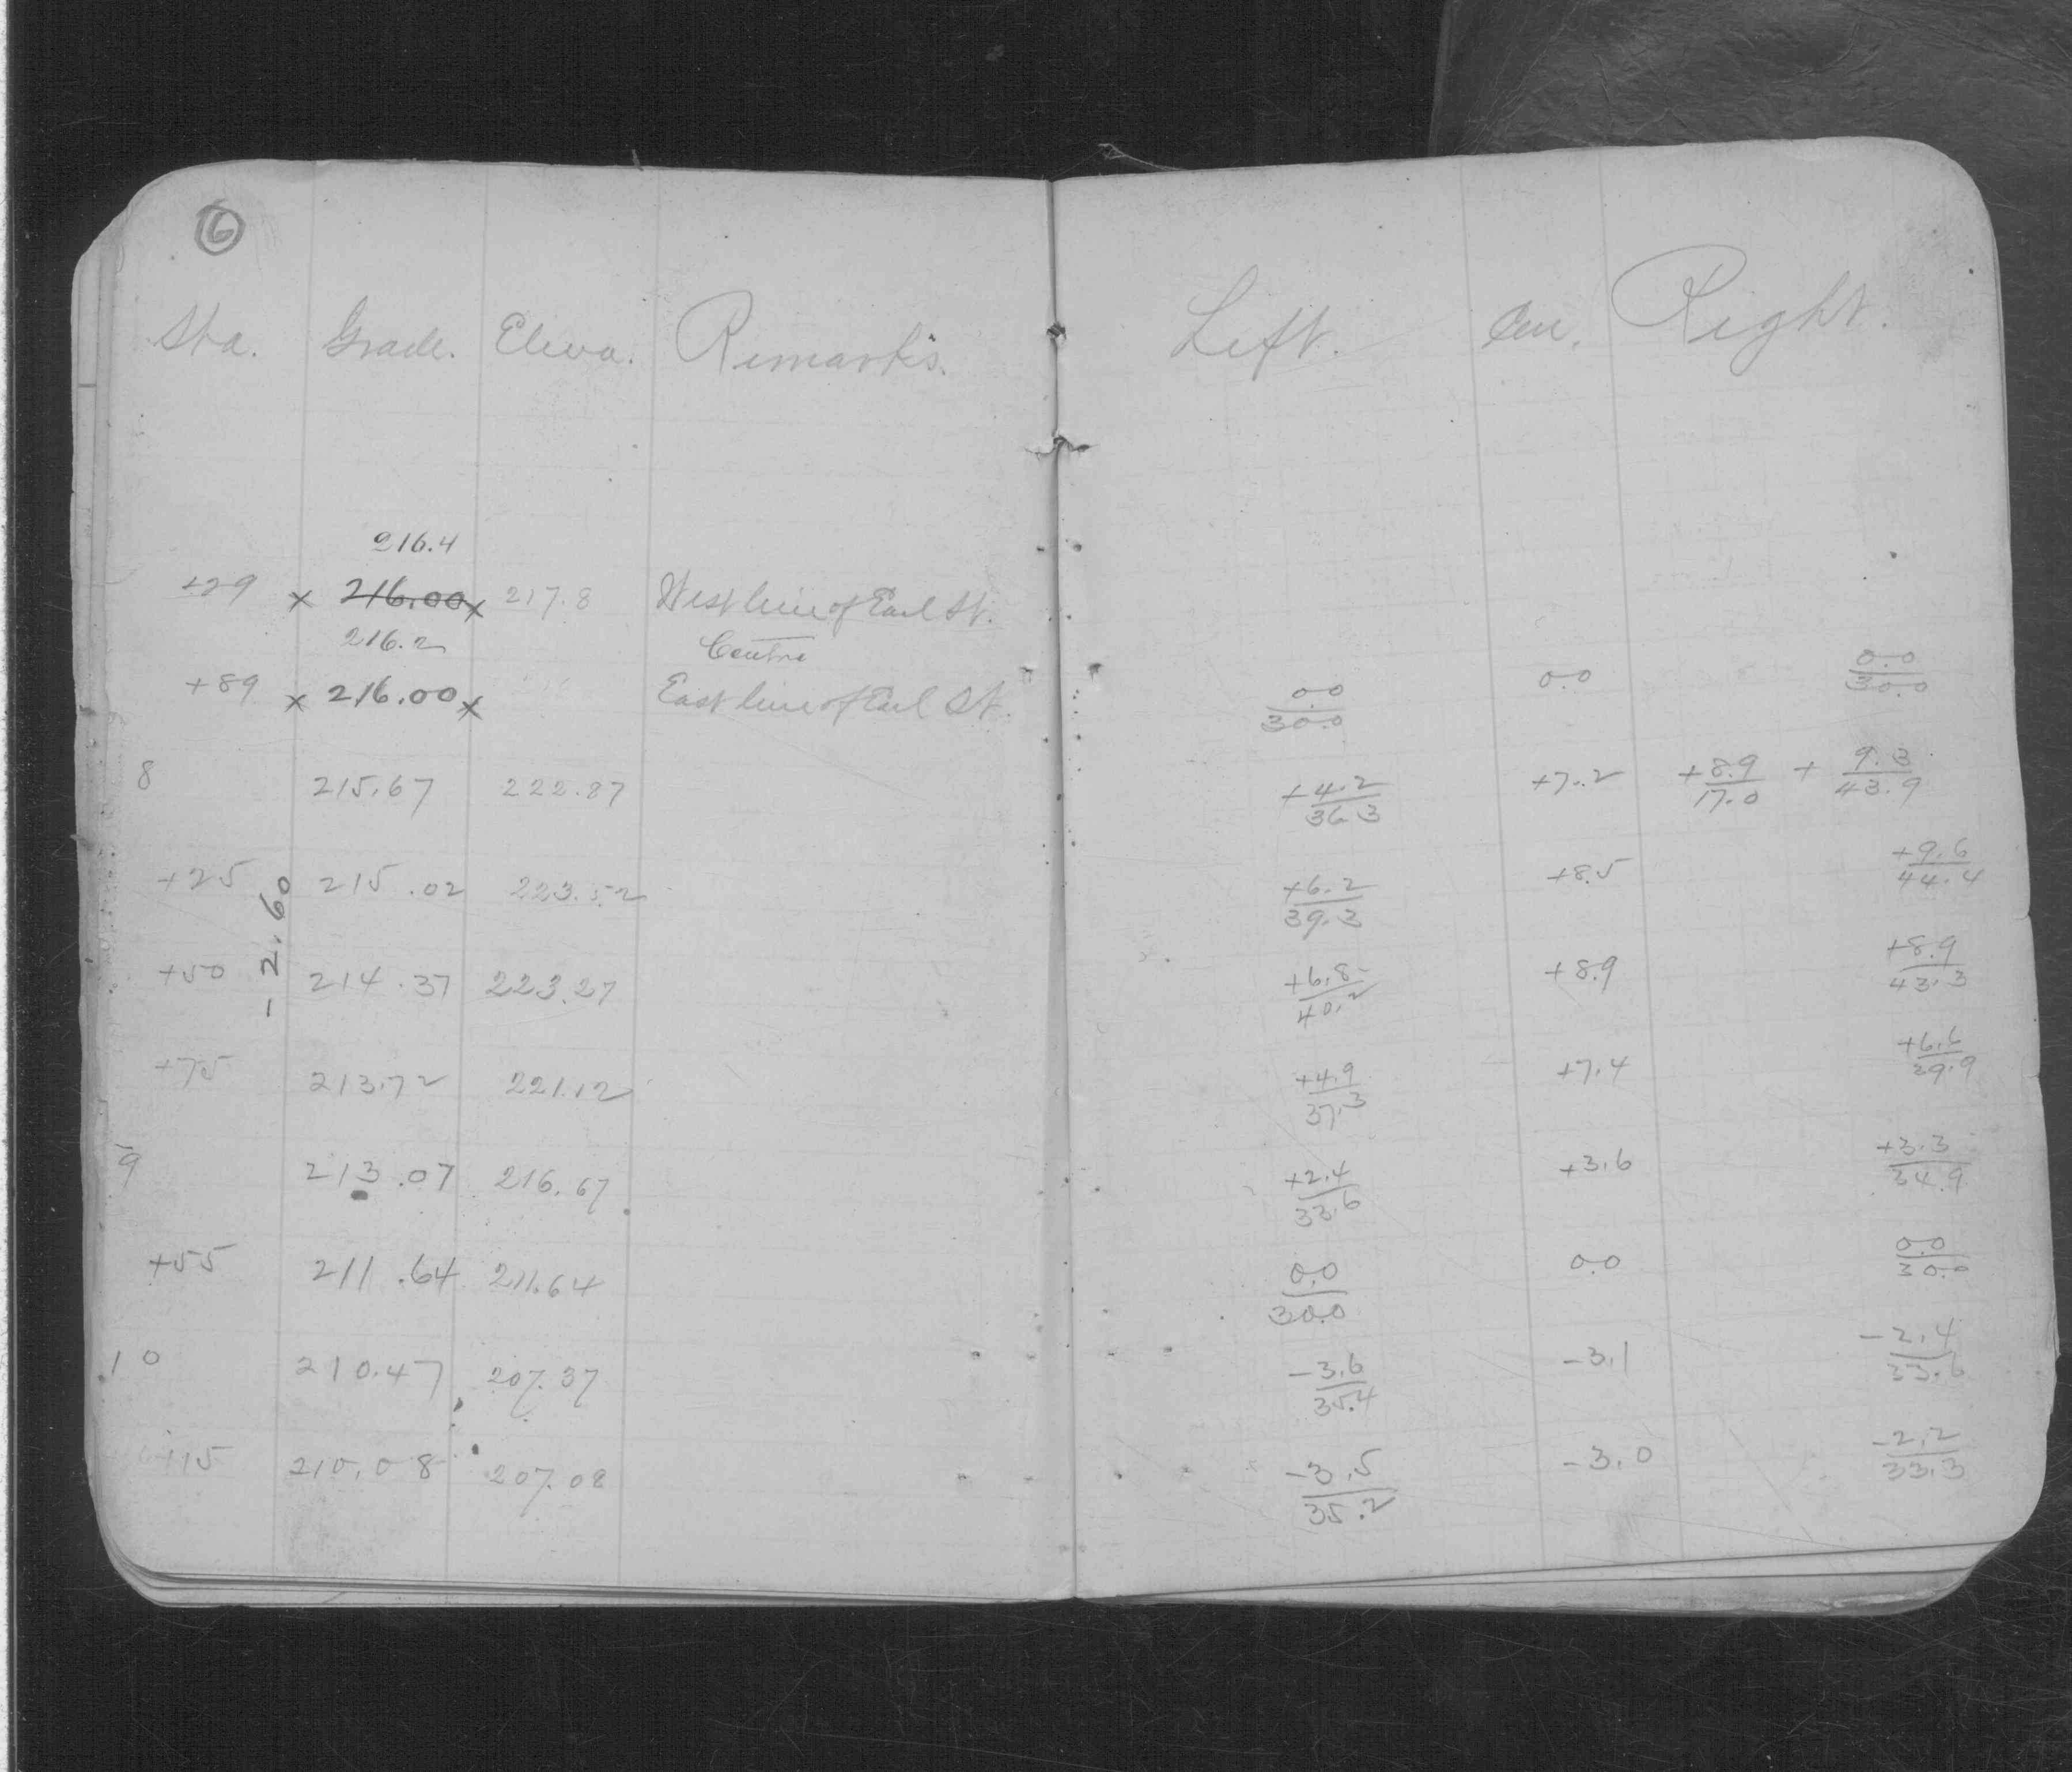 6
Sta. Grade. Eleva. Remarks. Left. Cen. Right.
216.4
+29 x 216.00 x 217.8 West line of Earl St.
216.2 Centre
+89 x 216.00 x East line of Earl St. 0.0/30.0 0.0 0.0/30.0
8 215.67 222.87 +4.2/36.3 +7.2 +8.9/17.0 + 9.3/43.9
+25 215.02 223.52 +6.2/39.3 +8.5 +9.6/44.4
-2.60
+50 214.37 223.27 +6.8/40.2 +8.9 +8.9/43.3
+75 213.72 221.12 +4.9/37.3 +7.4 +6.6/39.9
9 213.07 216.67 +2.4/33.6 +3.6 +3.3/34.9
+55 211.64 211.64 0.0/30.0 0.0 0.0/30.0
10 210.47 207.37 -3.6/35.4 -3.1 -2.4/33.6
+15 210.08 207.08 -3.5/35.2 -3.0 -2.2/33.3